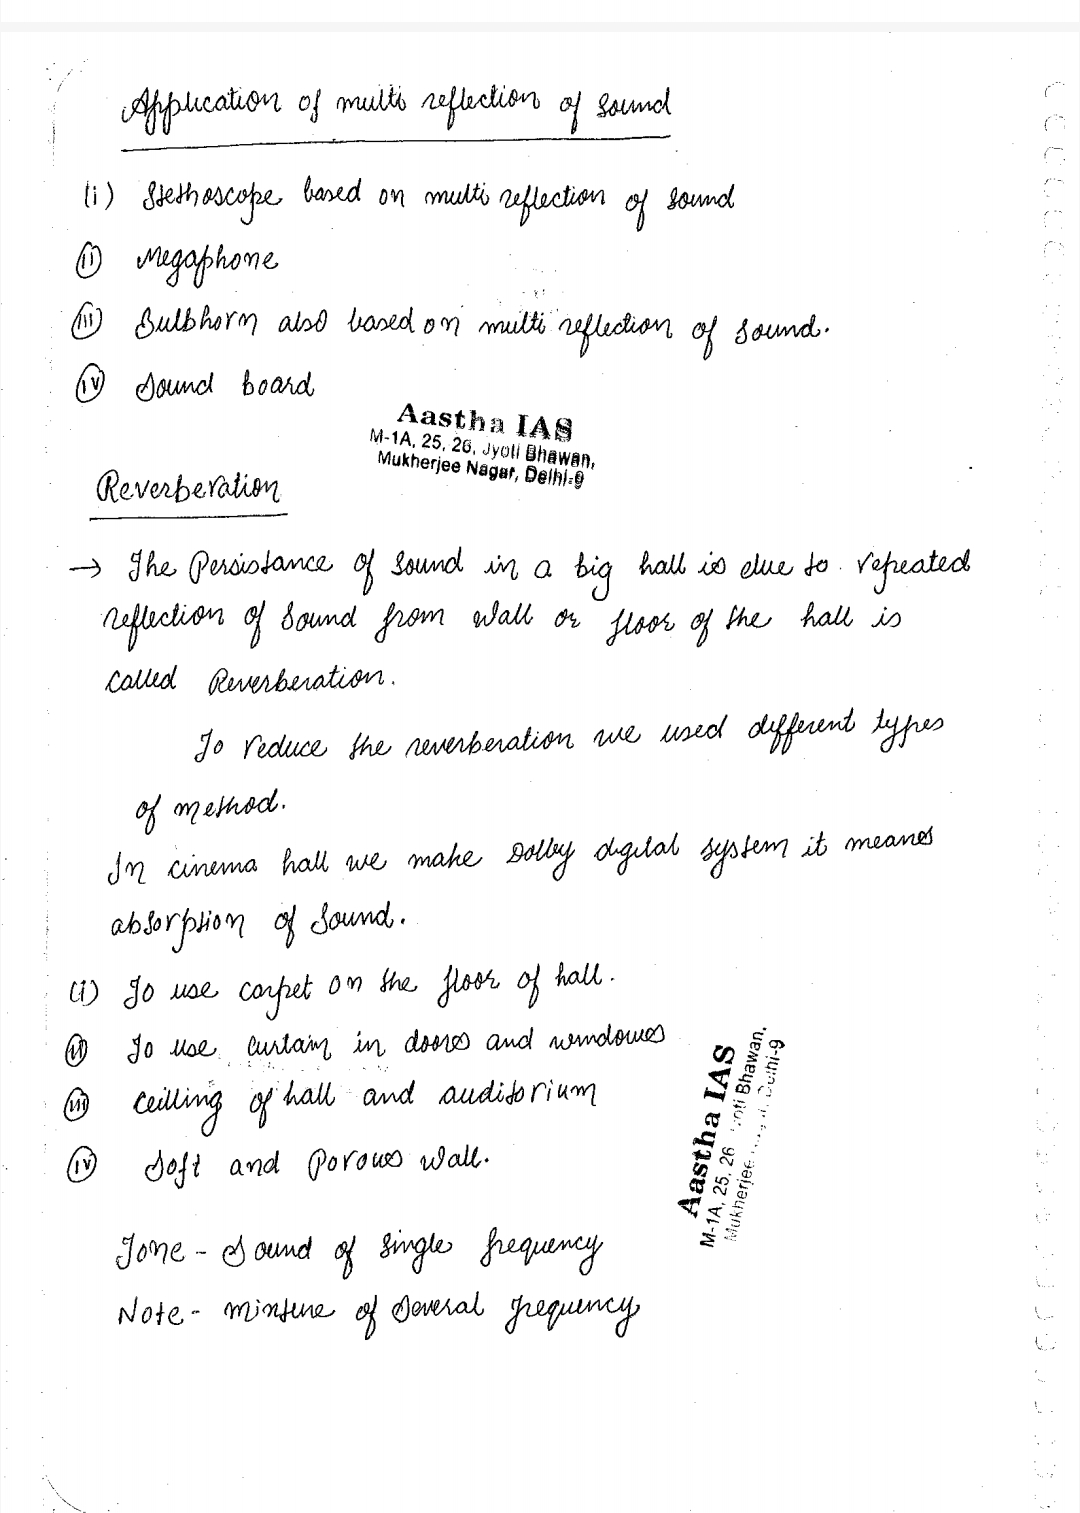 Application of multi reflection of sound
(i) Stethoscope based on multi reflection of sound
(ii) Megaphone
(iii) Bulbhorn also based on multi reflection of sound.
(iv) Sound board
Aastha IAS
M-1A, 25, 26, Jyoti Bhawan,
Mukherjee Nagar, Delhi-9
Reverberation
→ The Persistance of sound in a big hall is due to repeated
reflection of sound from wall or floor of the hall is
called Reverberation.
To reduce the reverberation we used different types
of method.
In cinema hall we make Dolby digital system it means
absorption of sound.
(i) To use carpet on the floor of hall.
(ii) To use curtain in doors and windows
(iii) Ceilling of hall and auditorium
(iv) Soft and Porous wall.
Aastha IAS
M-1A, 25, 26 Bhawan,
Mukherjee Delhi-9
Tone - Sound of single frequency
Note - mixture of several frequency